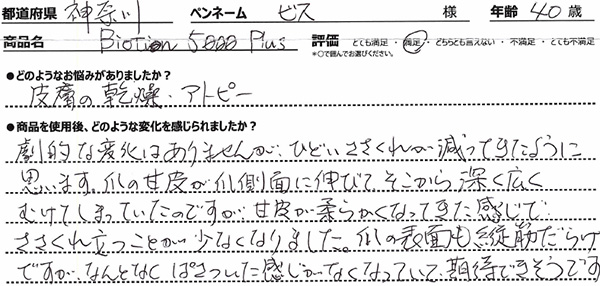 都道府県 神奈川 ペンネーム ビス 様 年齢 40 歳
商品名 Biotion 5000 Plus 評価 とても満足・満足・どちらとも言えない・不満足・とても不満足
*○で囲んでお選びください。
●どのようなお悩みがありましたか?
皮膚の乾燥・アトピー
●商品を使用後、どのような変化を感じられましたか?
劇的な変化はありませんが、ひどいささくれが減ってきたように
思います。爪の甘皮が爪側面に伸びて、そこから深く広く
むけてしまっていたのですが、甘皮が柔らかくなってきた感じで
ささくれ立つことが少なくなりました。爪の表面も縦筋だらけ
ですが、なんとなくぱさついた感じがなくなっていて、期待できそうです